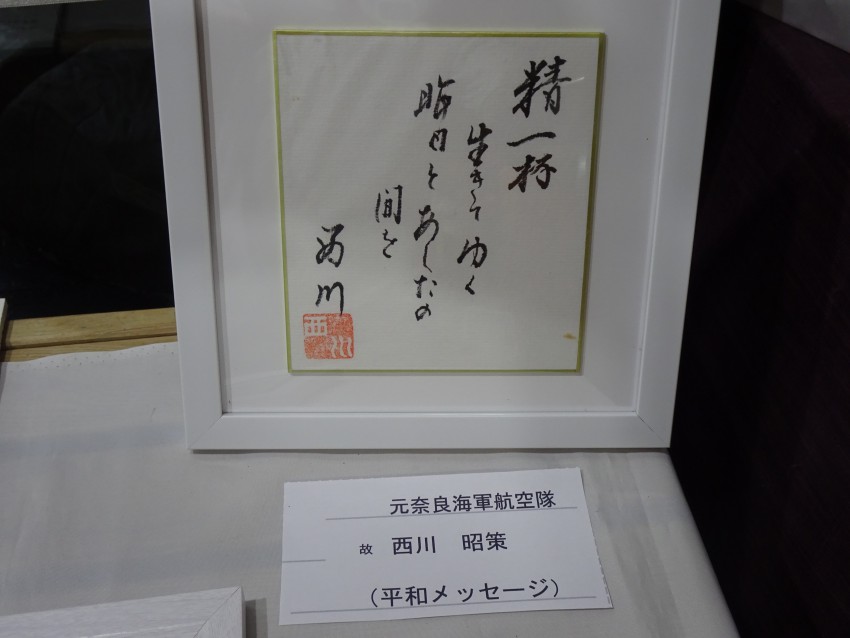 精一杯
生きてゆく
昨日とあしたの
間を
西川
元奈良海軍航空隊
故 西川 昭策
(平和メッセージ)